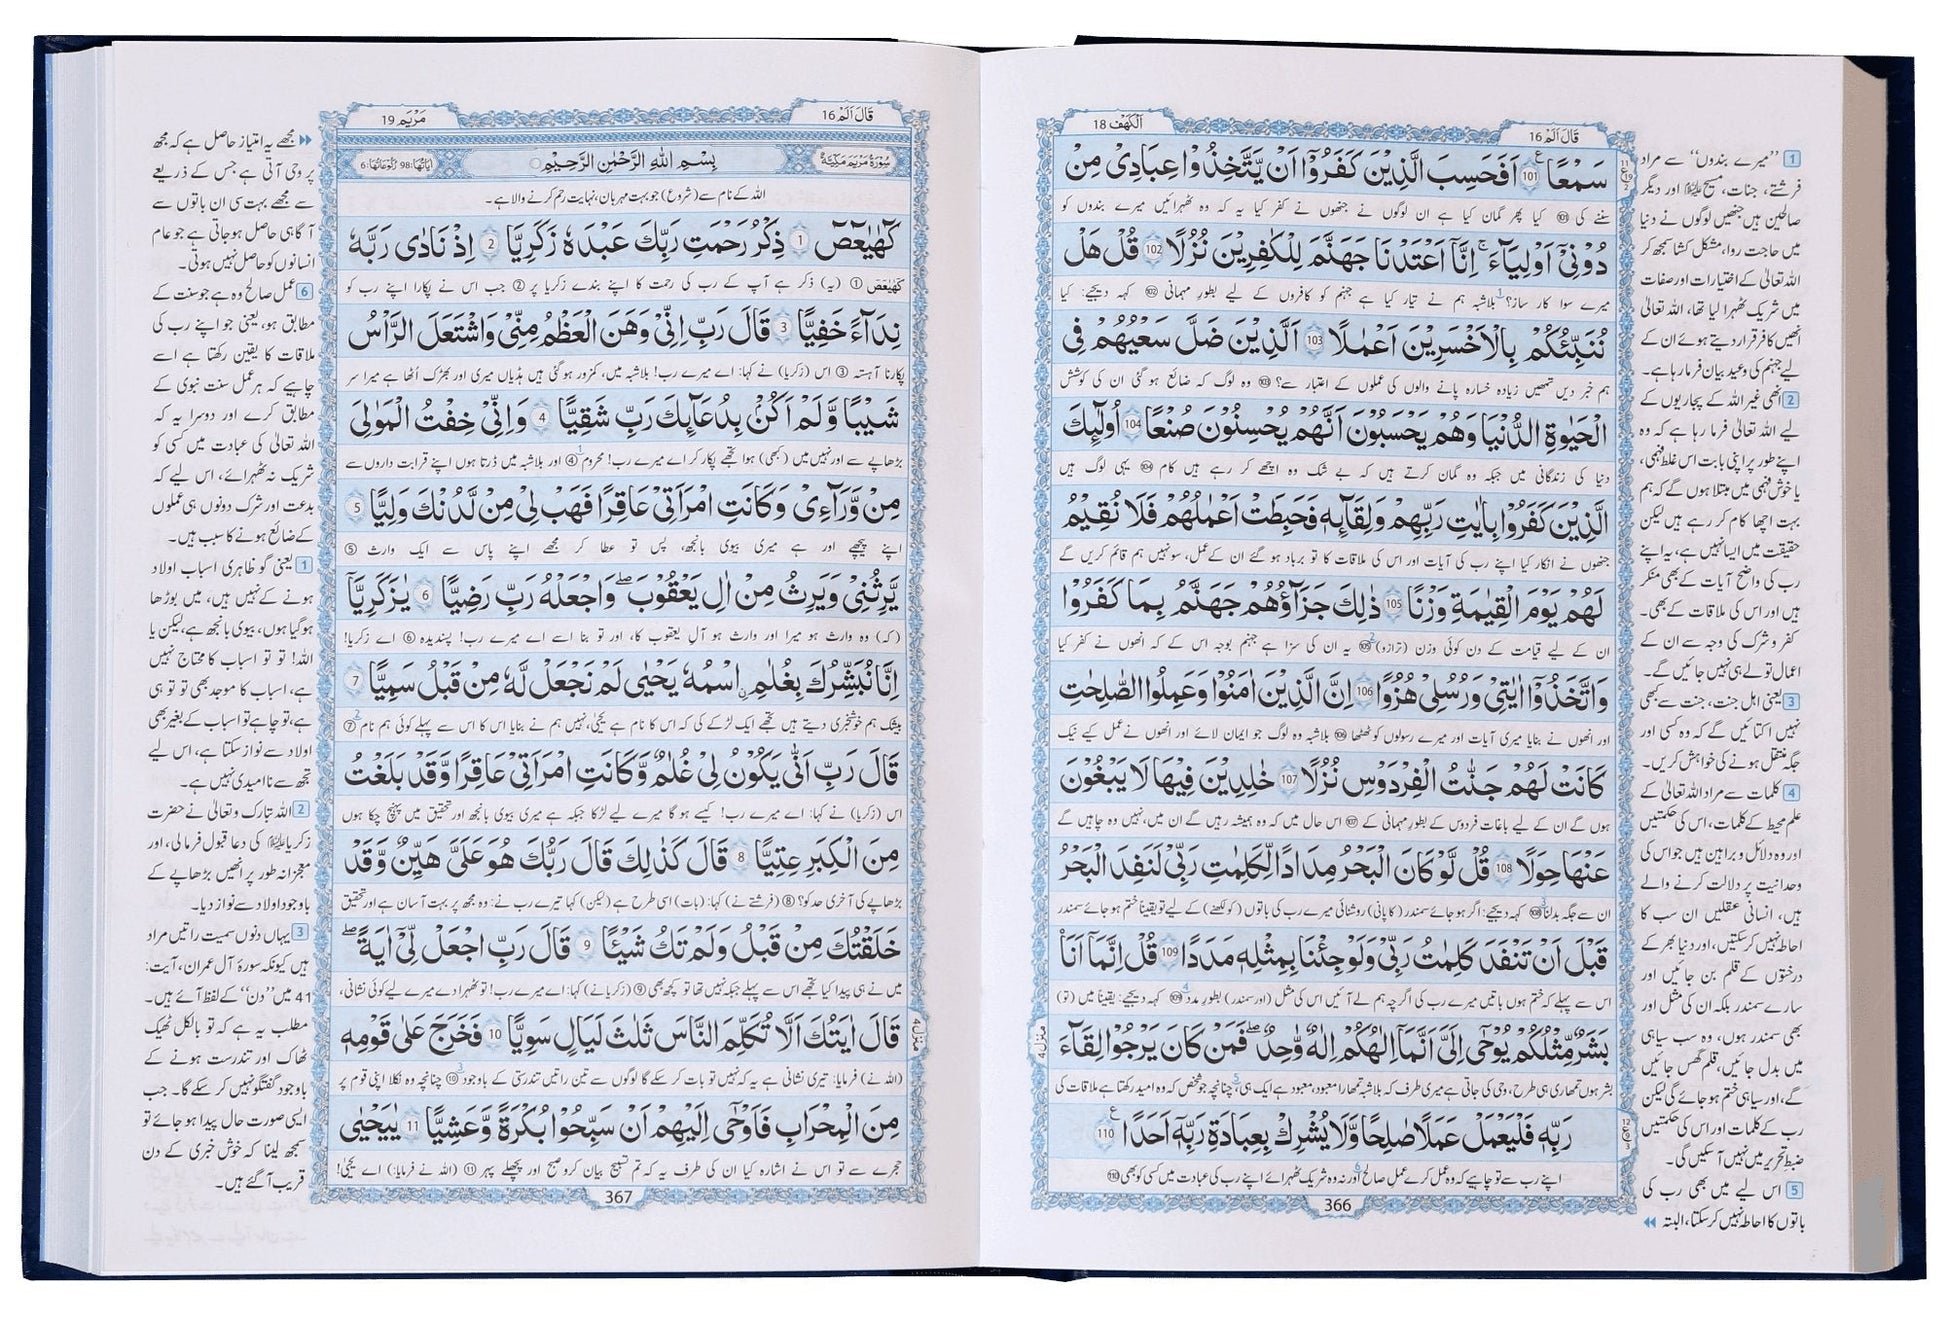 قَالَ اَلَمْ 16
اَلْكَهْف 18
سَمْعًا 101 اَفَحَسِبَ الَّذِيْنَ كَفَرُوْۤا اَنْ يَّتَّخِذُوْا عِبَادِيْ مِنْ
سننے کی 101 کیا پھر گمان کیا ہے ان لوگوں نے جنھوں نے کفر کیا یہ کہ وہ ٹھہرائیں میرے بندوں کو
دُوْنِيْۤ اَوْلِيَآءَ ۚ اِنَّاۤ اَعْتَدْنَا جَهَنَّمَ لِلْكٰفِرِيْنَ نُزُلًا 102 قُلْ هَلْ
میرے سوا کار ساز؟ 1 بلاشبہ ہم نے تیار کیا ہے جہنم کو کافروں کے لیے بطورِ مہمانی 102 کہہ دیجیے: کیا
نُنَبِّئُكُمْ بِالْاَخْسَرِيْنَ اَعْمٰلًا 103 اَلَّذِيْنَ ضَلَّ سَعْيُهُمْ فِي
ہم خبر دیں تمھیں زیادہ خسارہ پانے والوں کی عملوں کے اعتبار سے؟ 103 وہ لوگ کہ ضائع ہو گئی ان کی کوشش
الْحَيٰوةِ الدُّنْيَا وَهُمْ يَحْسَبُوْنَ اَنَّهُمْ يُحْسِنُوْنَ صُنْعًا 104 اُولٰٓئِكَ
دنیا کی زندگانی میں جبکہ وہ گمان کرتے ہیں کہ بے شک وہ اچھے کر رہے ہیں کام 104 یہی لوگ ہیں
الَّذِيْنَ كَفَرُوْا بِاٰيٰتِ رَبِّهِمْ وَلِقَآئِهٖ فَحَبِطَتْ اَعْمٰلُهُمْ فَلَا نُقِيْمُ
جنھوں نے انکار کیا اپنے رب کی آیات اور اس کی ملاقات کا تو برباد ہو گئے ان کے عمل، سو نہیں ہم قائم کریں گے
لَهُمْ يَوْمَ الْقِيٰمَةِ وَزْنًا 105 ذٰلِكَ جَزَآؤُهُمْ جَهَنَّمُ بِمَا كَفَرُوْا
ان کے لیے قیامت کے دن کوئی وزن (ترازو) 2 105 یہ ان کی سزا ہے جہنم بوجہ اس کے کہ انھوں نے کفر کیا
وَاتَّخَذُوْۤا اٰيٰتِيْ وَرُسُلِيْ هُزُوًا 106 اِنَّ الَّذِيْنَ اٰمَنُوْا وَعَمِلُوا الصّٰلِحٰتِ
اور انھوں نے بنایا میری آیات اور میرے رسولوں کو ٹھٹھا 106 بلاشبہ وہ لوگ جو ایمان لائے اور انھوں نے عمل کیے نیک
كَانَتْ لَهُمْ جَنّٰتُ الْفِرْدَوْسِ نُزُلًا 107 خٰلِدِيْنَ فِيْهَا لَا يَبْغُوْنَ
ہوں گے ان کے لیے باغات فردوس کے بطورِ مہمانی کے 107 اس حال میں کہ وہ ہمیشہ رہیں گے ان میں، نہیں وہ چاہیں گے
عَنْهَا حِوَلًا 108 قُلْ لَّوْ كَانَ الْبَحْرُ مِدَادًا لِّكَلِمٰتِ رَبِّيْ لَنَفِدَ الْبَحْرُ
ان سے جگہ بدلنا 3 108 کہہ دیجیے: اگر ہو جائے سمندر (کا پانی) روشنائی میرے رب کی باتوں (کو لکھنے) کے لیے تو یقیناً ختم ہو جائے سمندر
قَبْلَ اَنْ تَنْفَدَ كَلِمٰتُ رَبِّيْ وَلَوْ جِئْنَا بِمِثْلِهٖ مَدَدًا 109 قُلْ اِنَّمَاۤ اَنَا
اس سے پہلے کہ ختم ہوں باتیں میرے رب کی اگرچہ ہم لے آئیں اس کی مثل (اور سمندر) بطورِ مدد 4 109 کہہ دیجیے: یقیناً میں (تو)
بَشَرٌ مِّثْلُكُمْ يُوْحٰۤى اِلَيَّ اَنَّمَاۤ اِلٰهُكُمْ اِلٰهٌ وّٰحِدٌ ۖ فَمَنْ كَانَ يَرْجُوْا لِقَآءَ
بشر ہوں تمھاری ہی طرح، وحی کی جاتی ہے میری طرف کہ بلاشبہ تمھارا معبود، معبود ہے ایک ہی، 5 چنانچہ جو شخص کہ وہ امید رکھتا ہے ملاقات کی
رَبِّهٖ فَلْيَعْمَلْ عَمَلًا صٰلِحًا وَّلَا يُشْرِكْ بِعِبَادَةِ رَبِّهٖۤ اَحَدًا 110
اپنے رب سے تو چاہیے کہ وہ عمل کرے عمل صالح 6 اور نہ وہ شریک ٹھہرائے اپنے رب کی عبادت میں کسی کو بھی 110
366
منزل 4
1 ”میرے بندوں“ سے مراد
فرشتے، جنات، مسیح اور دیگر
صالحین ہیں جنھیں لوگوں نے دنیا
میں حاجت روا، مشکل کشا سمجھ کر
اللہ تعالیٰ کے اختیارات اور صفات
میں شریک ٹھہرا لیا تھا، اللہ تعالیٰ
انھیں کافر قرار دیتے ہوئے ان کے
لیے جہنم کی وعید بیان فرما رہا ہے۔
2 انھی غیر اللہ کے پجاریوں کے
لیے اللہ تعالیٰ فرما رہا ہے کہ وہ
اپنے طور پر اپنی بابت اس غلط فہمی،
یا خوش فہمی میں مبتلا ہوں گے کہ ہم
بہت اچھا کام کر رہے ہیں لیکن
حقیقت میں ایسا نہیں ہے، یہ اپنے
رب کی واضح آیات کے بھی منکر
ہیں اور اس کی ملاقات کے بھی۔
کفر و شرک کی وجہ سے ان کے
اعمال تولے ہی نہیں جائیں گے۔
3 یعنی اہل جنت، جنت سے کبھی
نہیں اکتائیں گے کہ وہ کسی اور
جگہ منتقل ہونے کی خواہش کریں۔
4 کلمات سے مراد اللہ تعالیٰ کے
علم محیط کے کلمات، اس کی حکمتیں
اور وہ دلائل و براہین ہیں جو اس کی
وحدانیت پر دلالت کرنے والے
ہیں، انسانی عقلیں ان سب کا
احاطہ نہیں کر سکتیں، اور دنیا بھر کے
درختوں کے قلم بن جائیں اور
سارے سمندر بلکہ ان کی مثل اور
بھی سمندر ہوں، وہ سب سیاہی
میں بدل جائیں، قلم گھس جائیں
گے، اور سیاہی ختم ہو جائے گی لیکن
رب کے کلمات اور اس کی حکمتیں
ضبط تحریر میں نہیں آ سکیں گی۔
5 اس لیے میں بھی رب کی
باتوں کا احاطہ نہیں کر سکتا، البتہ
قَالَ اَلَمْ 16
مَرْيَم 19
سُوْرَةُ مَرْيَمَ مَكِّيَّةٌ
بِسْمِ اللّٰهِ الرَّحْمٰنِ الرَّحِيْمِ
اٰيَاتُهَا: 98 رُكُوْعَاتُهَا: 6
اللہ کے نام سے (شروع) جو بہت مہربان، نہایت رحم کرنے والا ہے۔
كٓهٰيٰعٓصٓ 1 ذِكْرُ رَحْمَتِ رَبِّكَ عَبْدَهٗ زَكَرِيَّا 2 اِذْ نَادٰى رَبَّهٗ
كٓهٰيٰعٓصٓ 1 (یہ) ذکر ہے آپ کے رب کی رحمت کا اپنے بندے زکریا پر 2 جب اس نے پکارا اپنے رب کو
نِدَآءً خَفِيًّا 3 قَالَ رَبِّ اِنِّيْ وَهَنَ الْعَظْمُ مِنِّيْ وَاشْتَعَلَ الرَّاْسُ
پکارنا آہستہ 3 اس (زکریا) نے کہا: اے میرے رب! بلاشبہ میں، کمزور ہو گئی ہیں ہڈیاں میری اور بھڑک اُٹھا ہے میرا سر
شَيْبًا وَّلَمْ اَكُنْۢ بِدُعَآئِكَ رَبِّ شَقِيًّا 4 وَاِنِّيْ خِفْتُ الْمَوَالِيَ
بڑھاپے سے اور نہیں میں (کبھی) ہوا تجھے پکار کر اے میرے رب! محروم 1 4 اور بلاشبہ میں ڈرتا ہوں اپنے قرابت داروں سے
مِنْ وَّرَآءِيْ وَكَانَتِ امْرَاَتِيْ عَاقِرًا فَهَبْ لِيْ مِنْ لَّدُنْكَ وَلِيًّا 5
اپنے پیچھے اور ہے میری بیوی بانجھ، پس تو عطا کر مجھے اپنے پاس سے ایک وارث 5
يَّرِثُنِيْ وَيَرِثُ مِنْ اٰلِ يَعْقُوْبَ ۖ وَاجْعَلْهُ رَبِّ رَضِيًّا 6 يٰزَكَرِيَّاۤ
(کہ) وہ وارث ہو میرا اور وارث ہو آلِ یعقوب کا، اور تو بنا اسے اے میرے رب! پسندیدہ 6 اے زکریا!
اِنَّا نُبَشِّرُكَ بِغُلٰمٍ اسْمُهٗ يَحْيٰى لَمْ نَجْعَلْ لَّهٗ مِنْ قَبْلُ سَمِيًّا 7
بیشک ہم خوشخبری دیتے ہیں تجھے ایک لڑکے کی کہ اس کا نام ہے یحییٰ، نہیں ہم نے بنایا اس کا اس سے پہلے کوئی ہم نام 2 7
قَالَ رَبِّ اَنّٰى يَكُوْنُ لِيْ غُلٰمٌ وَّكَانَتِ امْرَاَتِيْ عَاقِرًا وَّقَدْ بَلَغْتُ
اس (زکریا) نے کہا: اے میرے رب! کیسے ہو گا میرے لیے لڑکا جبکہ ہے میری بیوی بانجھ اور تحقیق میں پہنچ چکا ہوں
مِنَ الْكِبَرِ عِتِيًّا 8 قَالَ كَذٰلِكَ قَالَ رَبُّكَ هُوَ عَلَيَّ هَيِّنٌ وَّقَدْ
بڑھاپے کی آخری حد کو؟ 8 (فرشتے نے) کہا: (بات) اسی طرح ہے (لیکن) کہا تیرے رب نے: وہ مجھ پر بہت آسان ہے اور تحقیق
خَلَقْتُكَ مِنْ قَبْلُ وَلَمْ تَكُ شَيْئًا 9 قَالَ رَبِّ اجْعَلْ لِّيْۤ اٰيَةً ۖ
میں نے ہی پیدا کیا تجھے اس سے پہلے جبکہ نہیں تھا تو کچھ بھی 9 (زکریا نے) کہا: اے میرے رب! تو ٹھہرا دے میرے لیے کوئی نشانی،
قَالَ اٰيَتُكَ اَلَّا تُكَلِّمَ النَّاسَ ثَلٰثَ لَيَالٍ سَوِيًّا 10 فَخَرَجَ عَلٰى قَوْمِهٖ
(اللہ نے) فرمایا: تیری نشانی ہے یہ کہ نہیں تو بات کر سکے گا لوگوں سے تین راتیں تندرستی کے باوجود 3 10 چنانچہ وہ نکلا اپنی قوم پر
مِنَ الْمِحْرَابِ فَاَوْحٰۤى اِلَيْهِمْ اَنْ سَبِّحُوْا بُكْرَةً وَّعَشِيًّا 11 يٰيَحْيٰى
حجرے سے تو اس نے اشارہ کیا ان کی طرف یہ کہ تم تسبیح بیان کرو صبح اور پچھلے پہر 11 (اللہ نے فرمایا:) اے یحییٰ!
367
منزل 4
مجھے یہ امتیاز حاصل ہے کہ مجھ
پر وحی آتی ہے جس کے ذریعے
سے مجھے بہت سی ان باتوں سے
آگاہی حاصل ہو جاتی ہے جو عام
انسانوں کو حاصل نہیں ہوتی۔
6 عمل صالح وہ ہے جو سنت کے
مطابق ہو، یعنی جو اپنے رب کی
ملاقات کا یقین رکھتا ہے اسے
چاہیے کہ ہر عمل سنت نبوی کے
مطابق کرے اور دوسرا یہ کہ
اللہ تعالیٰ کی عبادت میں کسی کو
شریک نہ ٹھہرائے، اس لیے کہ
بدعت اور شرک دونوں ہی عملوں
کے ضائع ہونے کا سبب ہیں۔
1 یعنی گو ظاہری اسباب اولاد
ہونے کے نہیں ہیں، میں بوڑھا
ہو گیا ہوں، بیوی بانجھ ہے، لیکن یا
اللہ! تو تو اسباب کا محتاج نہیں
ہے، اسباب کا موجد بھی تو تو ہی
ہے، تو چاہے تو اسباب کے بغیر بھی
اولاد سے نواز سکتا ہے، اس لیے
تجھ سے نا امیدی نہیں ہے۔
2 اللہ تبارک و تعالیٰ نے حضرت
زکریا کی دعا قبول فرما لی، اور
معجزانہ طور پر انھیں بڑھاپے کے
باوجود اولاد سے نواز دیا۔
3 یہاں دنوں سمیت راتیں مراد
ہیں کیونکہ سورۂ آل عمران، آیت:
41 میں ”دن“ کے لفظ آئے ہیں۔
مطلب یہ ہے کہ تو بالکل ٹھیک
ٹھاک اور تندرست ہونے کے
باوجود گفتگو نہیں کر سکے گا۔ جب
ایسی صورت حال پیدا ہو جائے تو
سمجھ لینا کہ خوش خبری کے دن
قریب آ گئے ہیں۔